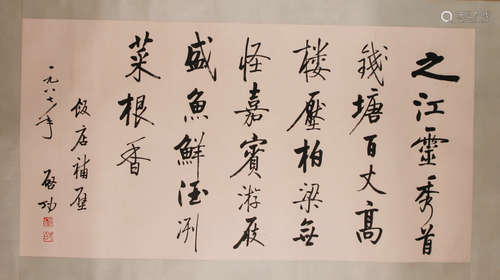 之江靈秀首
錢塘百丈高
楼壓柏梁無
怪嘉賓游屐
盛魚鮮酒洌
菜根香
飯店補壁
一九八七年
啓功